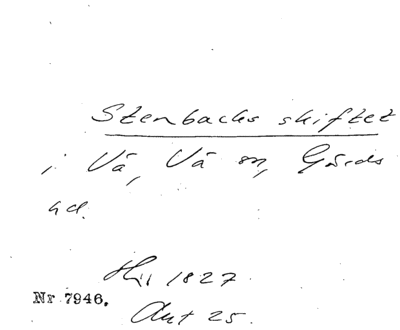 Stenbacks skiftet
i Vä, Vä sn, Gärds
hd.
1827
Nr 7946.
Akt 25.